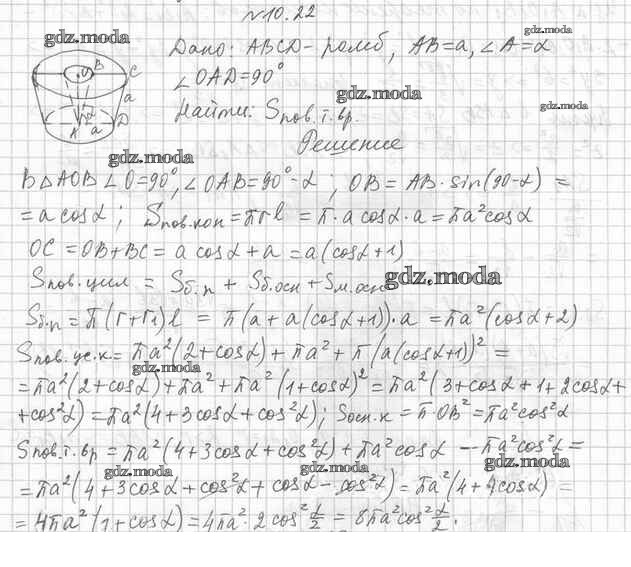 №10.22
gdz.moda
gdz.moda
Дано: ABCD - ромб, AB=a, ∠A=α
∠OAD=90°
gdz.moda
gdz.moda
Найти: Sпов.т.вр.
Решение
gdz.moda
В △AOB ∠O=90°, ∠OAB=90°-α; OB=AB·sin(90-α) =
= a cosα; Sпов.кон = πrl = π·a cosα·a = πa²cosα
OC = OB+BC = a cosα + a = a(cosα+1)
Sпов.цил = Sб.п + Sб.осн + Sм.осн
gdz.moda
Sб.п = π(r+r₁)l = π(a+a(cosα+1))·a = πa²(cosα+2)
Sпов.ус.к = πa²(2+cosα) + πa² + π(a(cosα+1))² =
gdz.moda
= πa²(2+cosα) + πa² + πa²(1+cosα)² = πa²(3+cosα+1+2cosα+
+cos²α) = πa²(4+3cosα+cos²α); Sосн.к = π·OB² = πa²cos²α
Sпов.т.вр = πa²(4+3cosα+cos²α) + πa²cosα - πa²cos²α =
gdz.moda gdz.moda gdz.moda
= πa²(4+3cosα+cos²α+cosα-cos²α) = πa²(4+4cosα) =
= 4πa²(1+cosα) = 4πa²·2cos²α/2 = 8πa²cos²α/2.
O
B
C
a
α
A
a
D